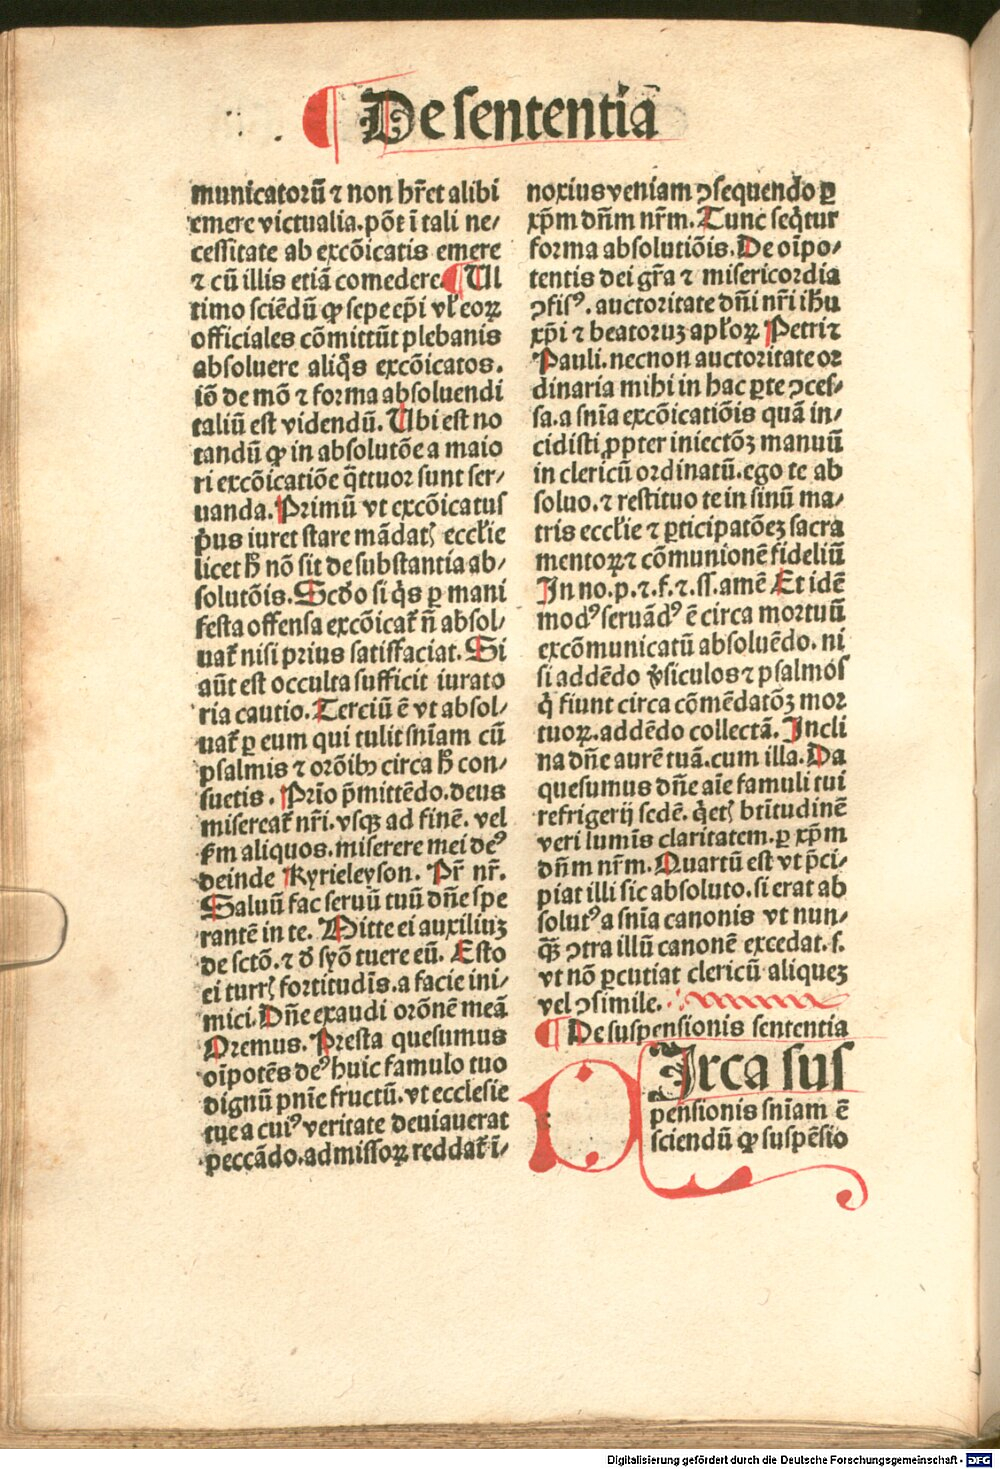 De sententia
municatorū ⁊ non hr̄et alibi
emere victualia.pōt ī tali ne⸗
cessitate ab excōicatis emere
⁊ cū illis etiā comedere. ¶ Ul
timo sciēdū ꝙ sepe ep̄i vl̄ eoꝝ
officiales cōmittūt plebanis
absoluere aliq̄s excōicatos.
iō de mō ⁊ forma absoluendi
taliū est videndū. Ubi est no
tandū ꝙ in absolutōe a maio
ri excōicatiōe q̄ttuor sunt ser⸗
uanda. Primū vt excōicatus
p̄us iuret stare mādatꝭ eccl̄ie
licet h̄ nō sit de substantia ab⸗
solutōis. Scd̄o si q̄s ꝑ mani
festa offensa excōicat̄ n̄ absol⸗
uat̄ nisi prius satisfaciat. Si
aūt est occulta sufficit iurato
ria cautio. Terciū ē vt absol⸗
uat̄ ꝑ eum qui tulit sn̄iam cū
psalmis ⁊ orōibꝰ circa h̄ con⸗
suetis. Prīo p̄mittēdo.deus
misereat̄ nr̄i.vsqꝫ ad finē. vel
s̄m aliquos.miserere mei deꝰ
deinde Kyrieleyson. Pr̄ nr̄.
Saluū fac seruū tuū dn̄e spe
rantē in te. Mitte ei auxiliuꝫ
de sctō.⁊ d̄ syō tuere eū. Esto
ei turrꝭ fortitudīs.a facie ini⸗
mici. Dn̄e exaudi orōnē meā
Oremus. Presta quesumus
oīpotēs deꝰ huic famulo tuo
dignū pnīe fructū.vt ecclesie
tue a cuiꝰ veritate deuiauerat
peccādo.admissoꝝ reddat̄ ī⸗
noxius veniam ꝯsequendo ꝑ
xp̄m dn̄m nr̄m. Tunc seq̄tur
forma absolutiōis. De oīpo⸗
tentis dei gr̄a ⁊ misericordia
ꝯfisꝰ. auctoritate dn̄i nr̄i ihū
xp̄i ⁊ beatoruꝫ apl̄oꝝ Petri ⁊
Pauli.necnon auctoritate or
dinaria mihi in hac ꝑte ꝯces⸗
sa.a sn̄ia excōicatiōis quā in⸗
cidisti ꝓpter iniectōꝫ manuū
in clericū ordinatū.ego te ab
soluo.⁊ restituo te in sinū ma⸗
tris eccl̄ie ⁊ ꝑticipatōeꝫ sacra
mentoꝝ ⁊ cōmunionē fideliū
In no.p.⁊.f.⁊.ss.amē Et idē
modꝰ seruādꝰ ē circa mortuū
excōmunicatū absoluēdo. ni
si addēdo v̄siculos ⁊ psalmos
q̄ fiunt circa cōmēdatōꝫ mor
tuoꝝ.addēdo collectā. Incli
na dn̄e aurē tuā.cum illa. Da
quesumus dn̄e aīe famuli tui
refrigerij sedē. q̄etꝭ btītudinē
veri lumīs claritatem.ꝑ xp̄m
dn̄m nr̄m. Quartū est vt p̄ci⸗
piat illi sic absoluto.si erat ab
solutꝰ a sn̄ia canonis vt nun⸗
q̄ꝫ ꝯtra illū canonē excedat.s.
vt nō ꝑcutiat clericū aliqueꝫ
vel ꝯsimile.
¶ De suspensionis sententia
CIrca sus
pensionis sn̄iam ē
sciendū ꝙ suspēsio
Digitalisierung gefördert durch die Deutsche Forschungsgemeinschaft - DFG